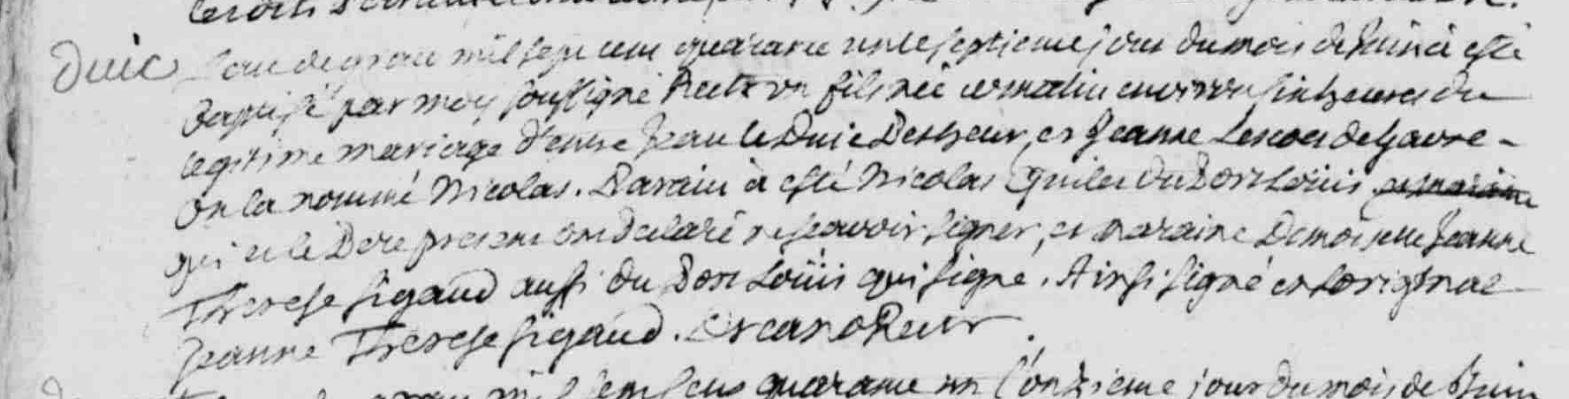 Duic L'an de grace mil sept cent quarante un le septieme jour du mois de Juin a esté
baptisé par moy soussigné Recteur un fils né ce matin environ six heures du
legitime mariage d'entre Jean le Duic et Jeanne de Gavre -
on la nommé Nicolas. Parain à esté Nicolas du Port Louis
qui et le Pere present ont declaré ne sçavoir signer, et maraine Demoiselle Jeanne
Therese Sigaud aussi du Port Loüis qui signe. Ainsi signé en Loriginal
Jeanne Therese Sigaud.
mil sept cens quarante un l'onzieme jour du mois de Juin